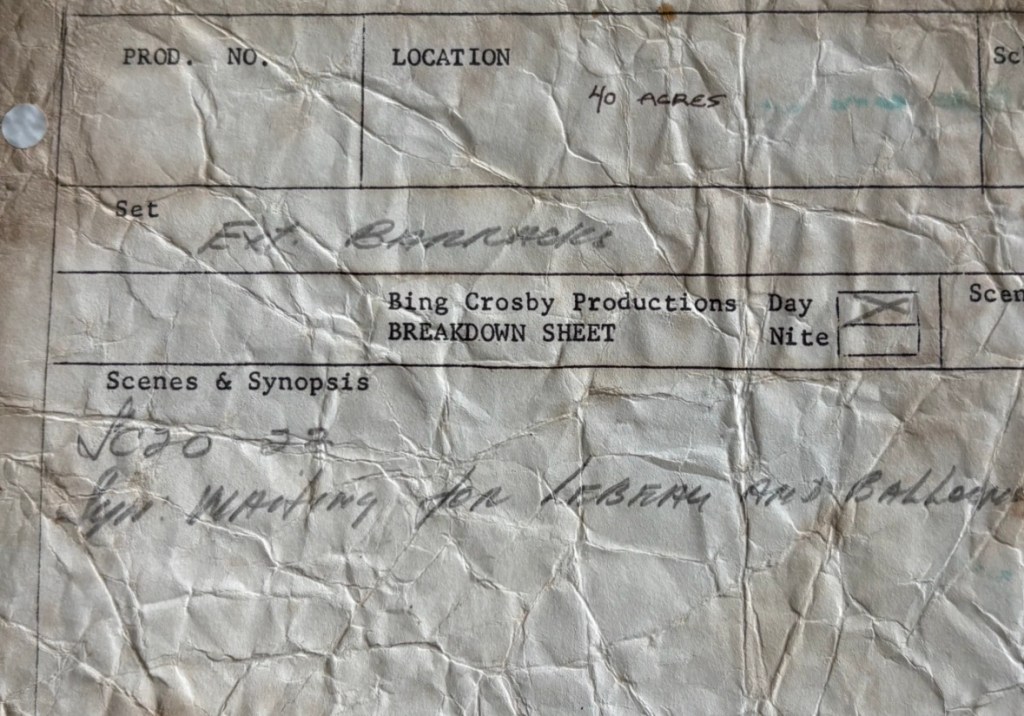 PROD. NO. LOCATION Sc
40 ACRES
Set
Ext. BARRACKS
Bing Crosby Productions Day Scen
BREAKDOWN SHEET Nite
Scenes & Synopsis
SC20 22
Syn. WAiting for LEBEAU AND BALLOONS